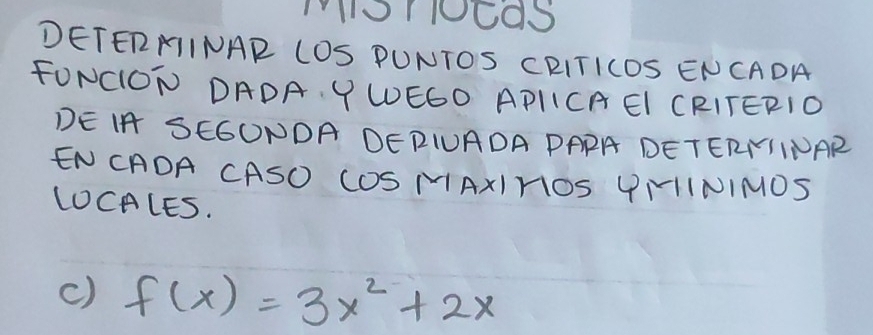 Mis notas
DETERMINAR LOS PUNTOS CRITICOS EN CADA
FUNCIÓN DADA Y LUEGO APLICA El CRITERIO
DE lA SEGUNDA DERIVADA PARA DETERMINAR
EN CADA CASO LOS MAXIMOS Y MIINIMOS
LOCALES.
c) f(x) = 3x² + 2x